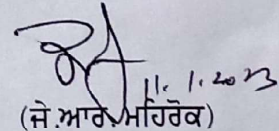 11.1.2023
(ਜੇ.ਆਰ.ਮਹਿਰੋਕ)